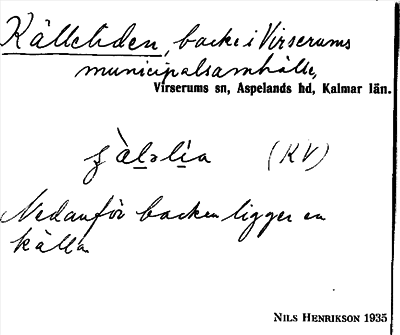 Källeliden, backe i Virserums
municipalsamhälle,
Virserums sn, Aspelands hd, Kalmar län.
(KV)
Nedanför backen ligger en
källa
NILS HENRIKSON 1935